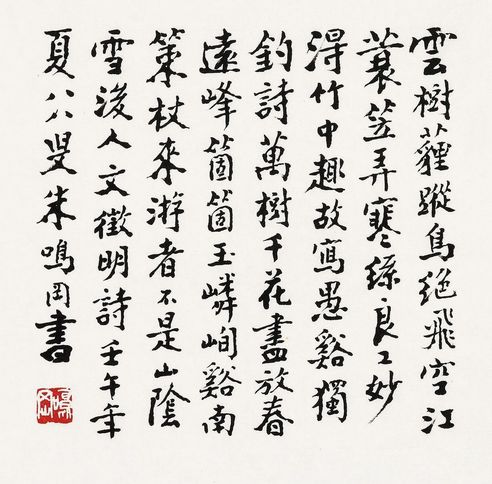 雲樹薶蹤鳥絕飛空江
蓑笠弄寒絲良工妙
得竹中趣故寫愚谿獨
釣詩萬樹千花盡放春
遠峰箇箇玉嶙峋谿南
策杖來游者不是山陰
雪後人文徵明詩壬午年
夏八八叟朱鳴岡書
鳴岡